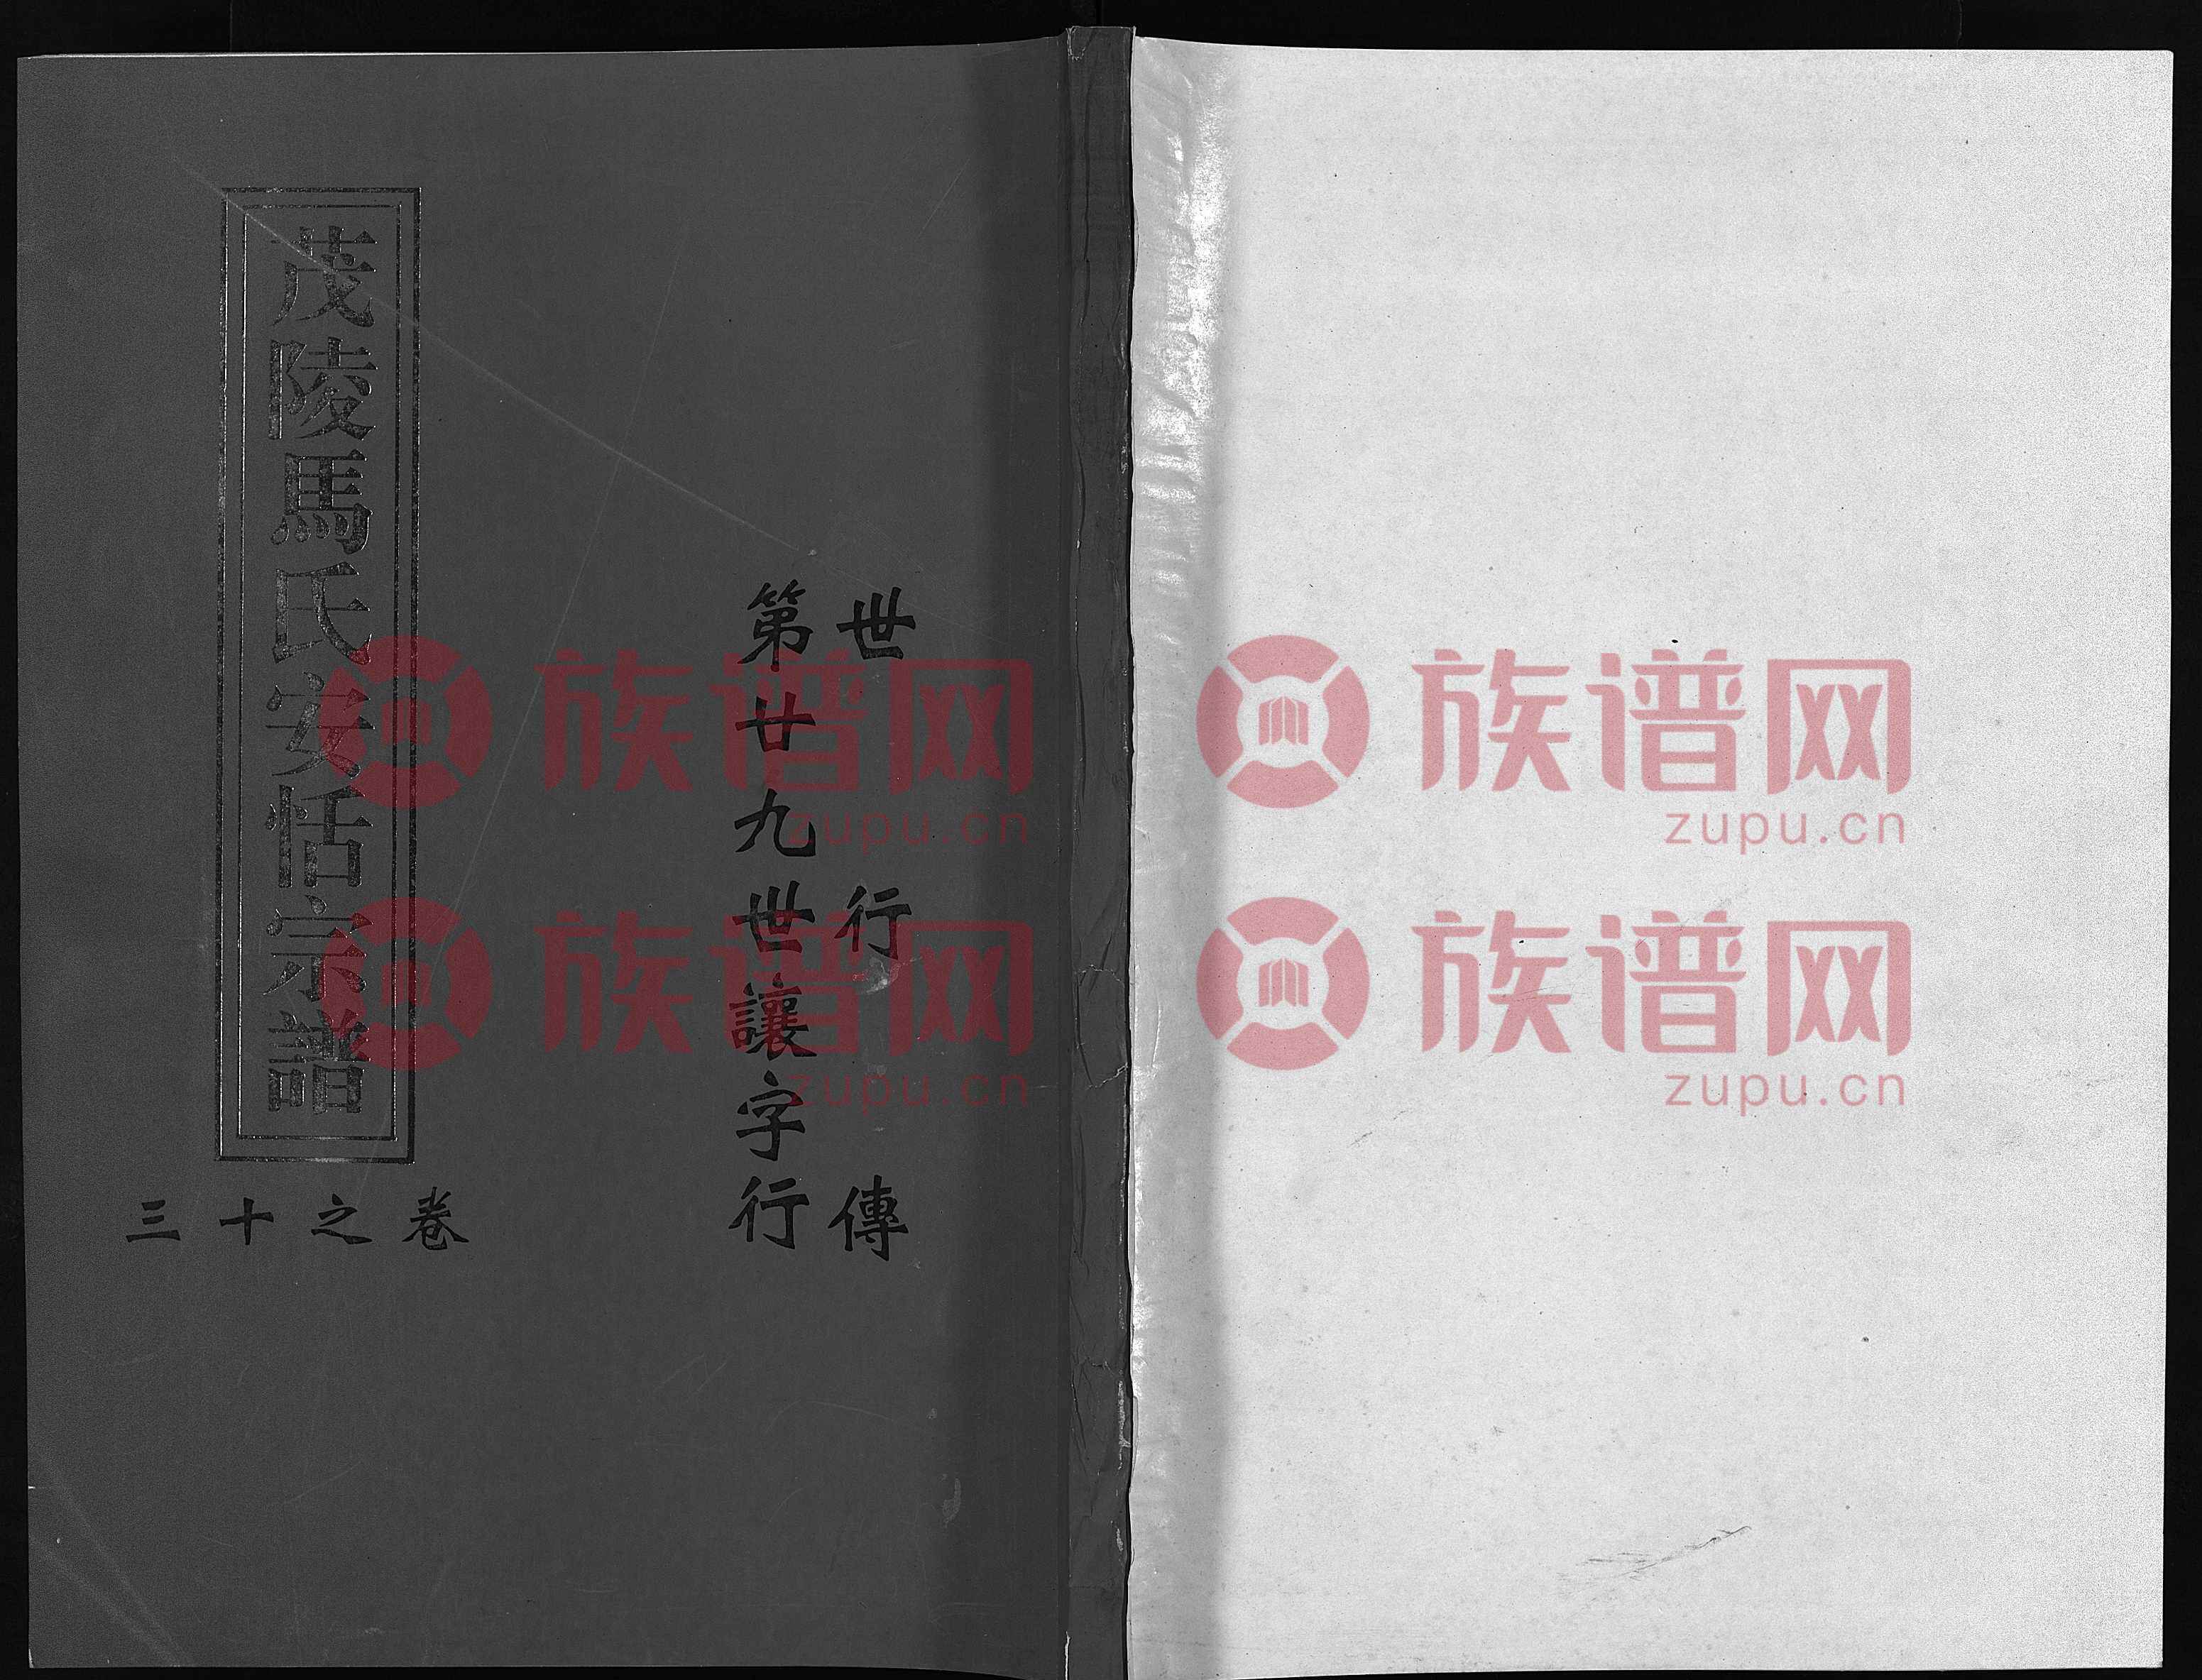 世行傳
第廿九世讓字行
茂陵馬氏安恬宗譜
卷之十三
族谱网
zupu.cn
族谱网
zupu.cn
族谱网
zupu.cn
族谱网
zupu.cn